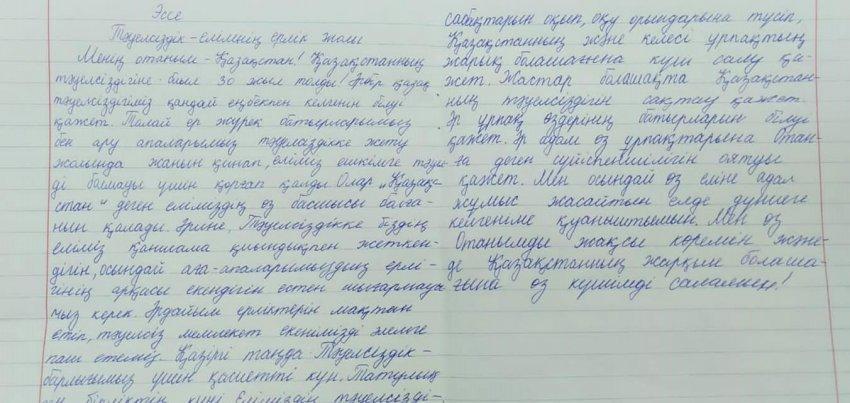 Эссе
Тәуелсіздік - елімнің ерлік жолы
Менің отаным - Қазақстан! Қазақстанның
тәуелсіздігіне - биыл 30 жыл толды! Әрбір қазақ
тәуелсіздігіміз қандай еңбекпен келгенін білуі
қажет. Талай ер жүрек батырларымыз
бен ару апаларымыз тәуелсіздікке жету
жолында жанын қинап, еліміз ешкімге тәуел
ді болмады үшін қорғап қалды. Олар „Қазақ-
стан" деген еліміздің өз басшысы болға-
нын қалады. Әрине, Тәуелсіздікке біздің
еліміз қаншама қиындықпен жеткен-
дігін, осындай аға-апаларымыздың ерлі-
гінің арқасы екендігін естен шығармауы
мыз керек. Әрдайым ерліктерін мақтан
етіп, тәуелсіз мемлекет екенімізді әлемге
паш етеміз. Қазіргі таңда Тәуелсіздік -
барлығымыз үшін қасиетті күн. Татулық
бірліктің күні Еліміздің тәуелсізді-
сабақтарын оқып, оқу орындарына түсіп,
Қазақстанның және келесі ұрпақтың
жарық болашағына күш салу қа-
жет. Жастар болашақта Қазақстан-
ның тәуелсіздігін сақтау қажет.
Әр ұрпақ өздерінің батырларын білуі
қажет. Әр адам өз ұрпақтарына Отан-
ға деген сүйіспеншілігін оятуы
қажет. Мен осындай өз еліне адал
жұмыс жасайтын елде дүниеге
келгеніме қуаныштымын. Мен өз
Отанымды жақсы көремін және-
де Қазақстанның жарқын болаша-
ғына өз күшімді саламын!